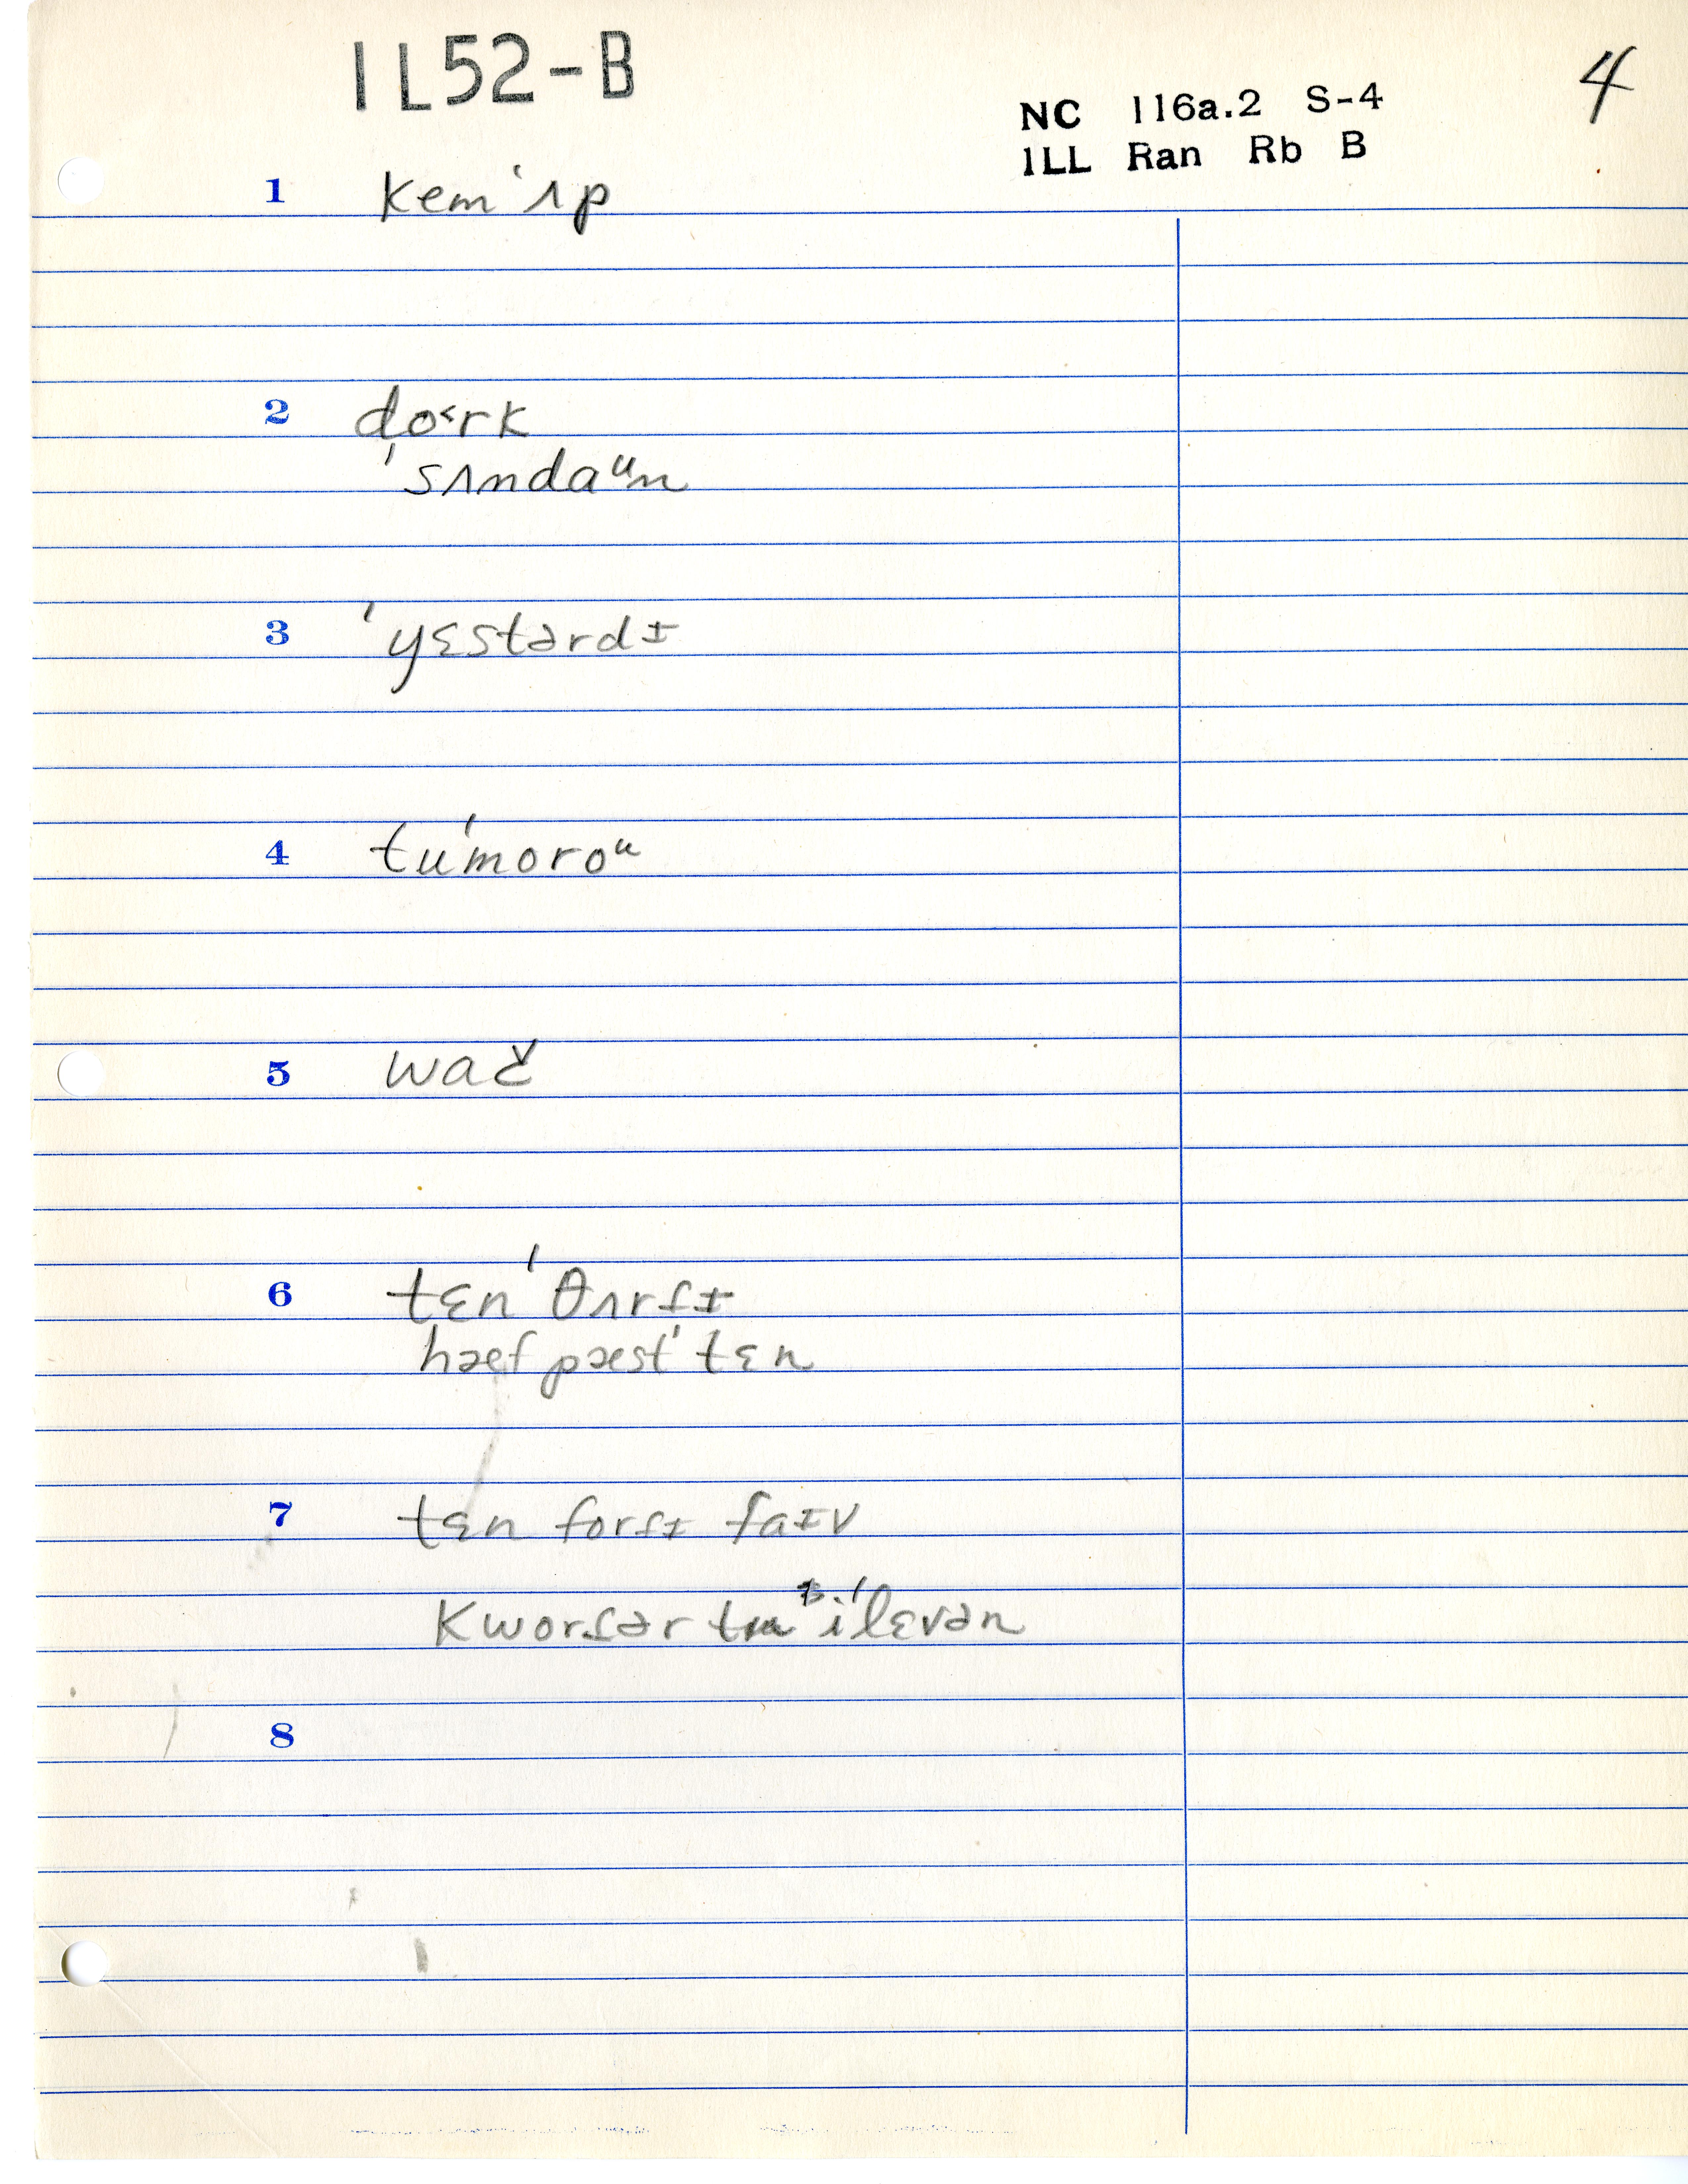 IL52-B
4
NC 116a.2 S-4
ILL Ran Rb B
1 kem ˈʌp
2 do˂rk
ˈsʌndaᵘn
3 ˈyɛstərdɪ
4 tuˈmoroᵘ
5 wač
6 tɛn ˈθʌrſɪ
hæf pæst ˈtɛn
7 tɛn forſɪ faɪv
Kworſər ˈilɛvən
8